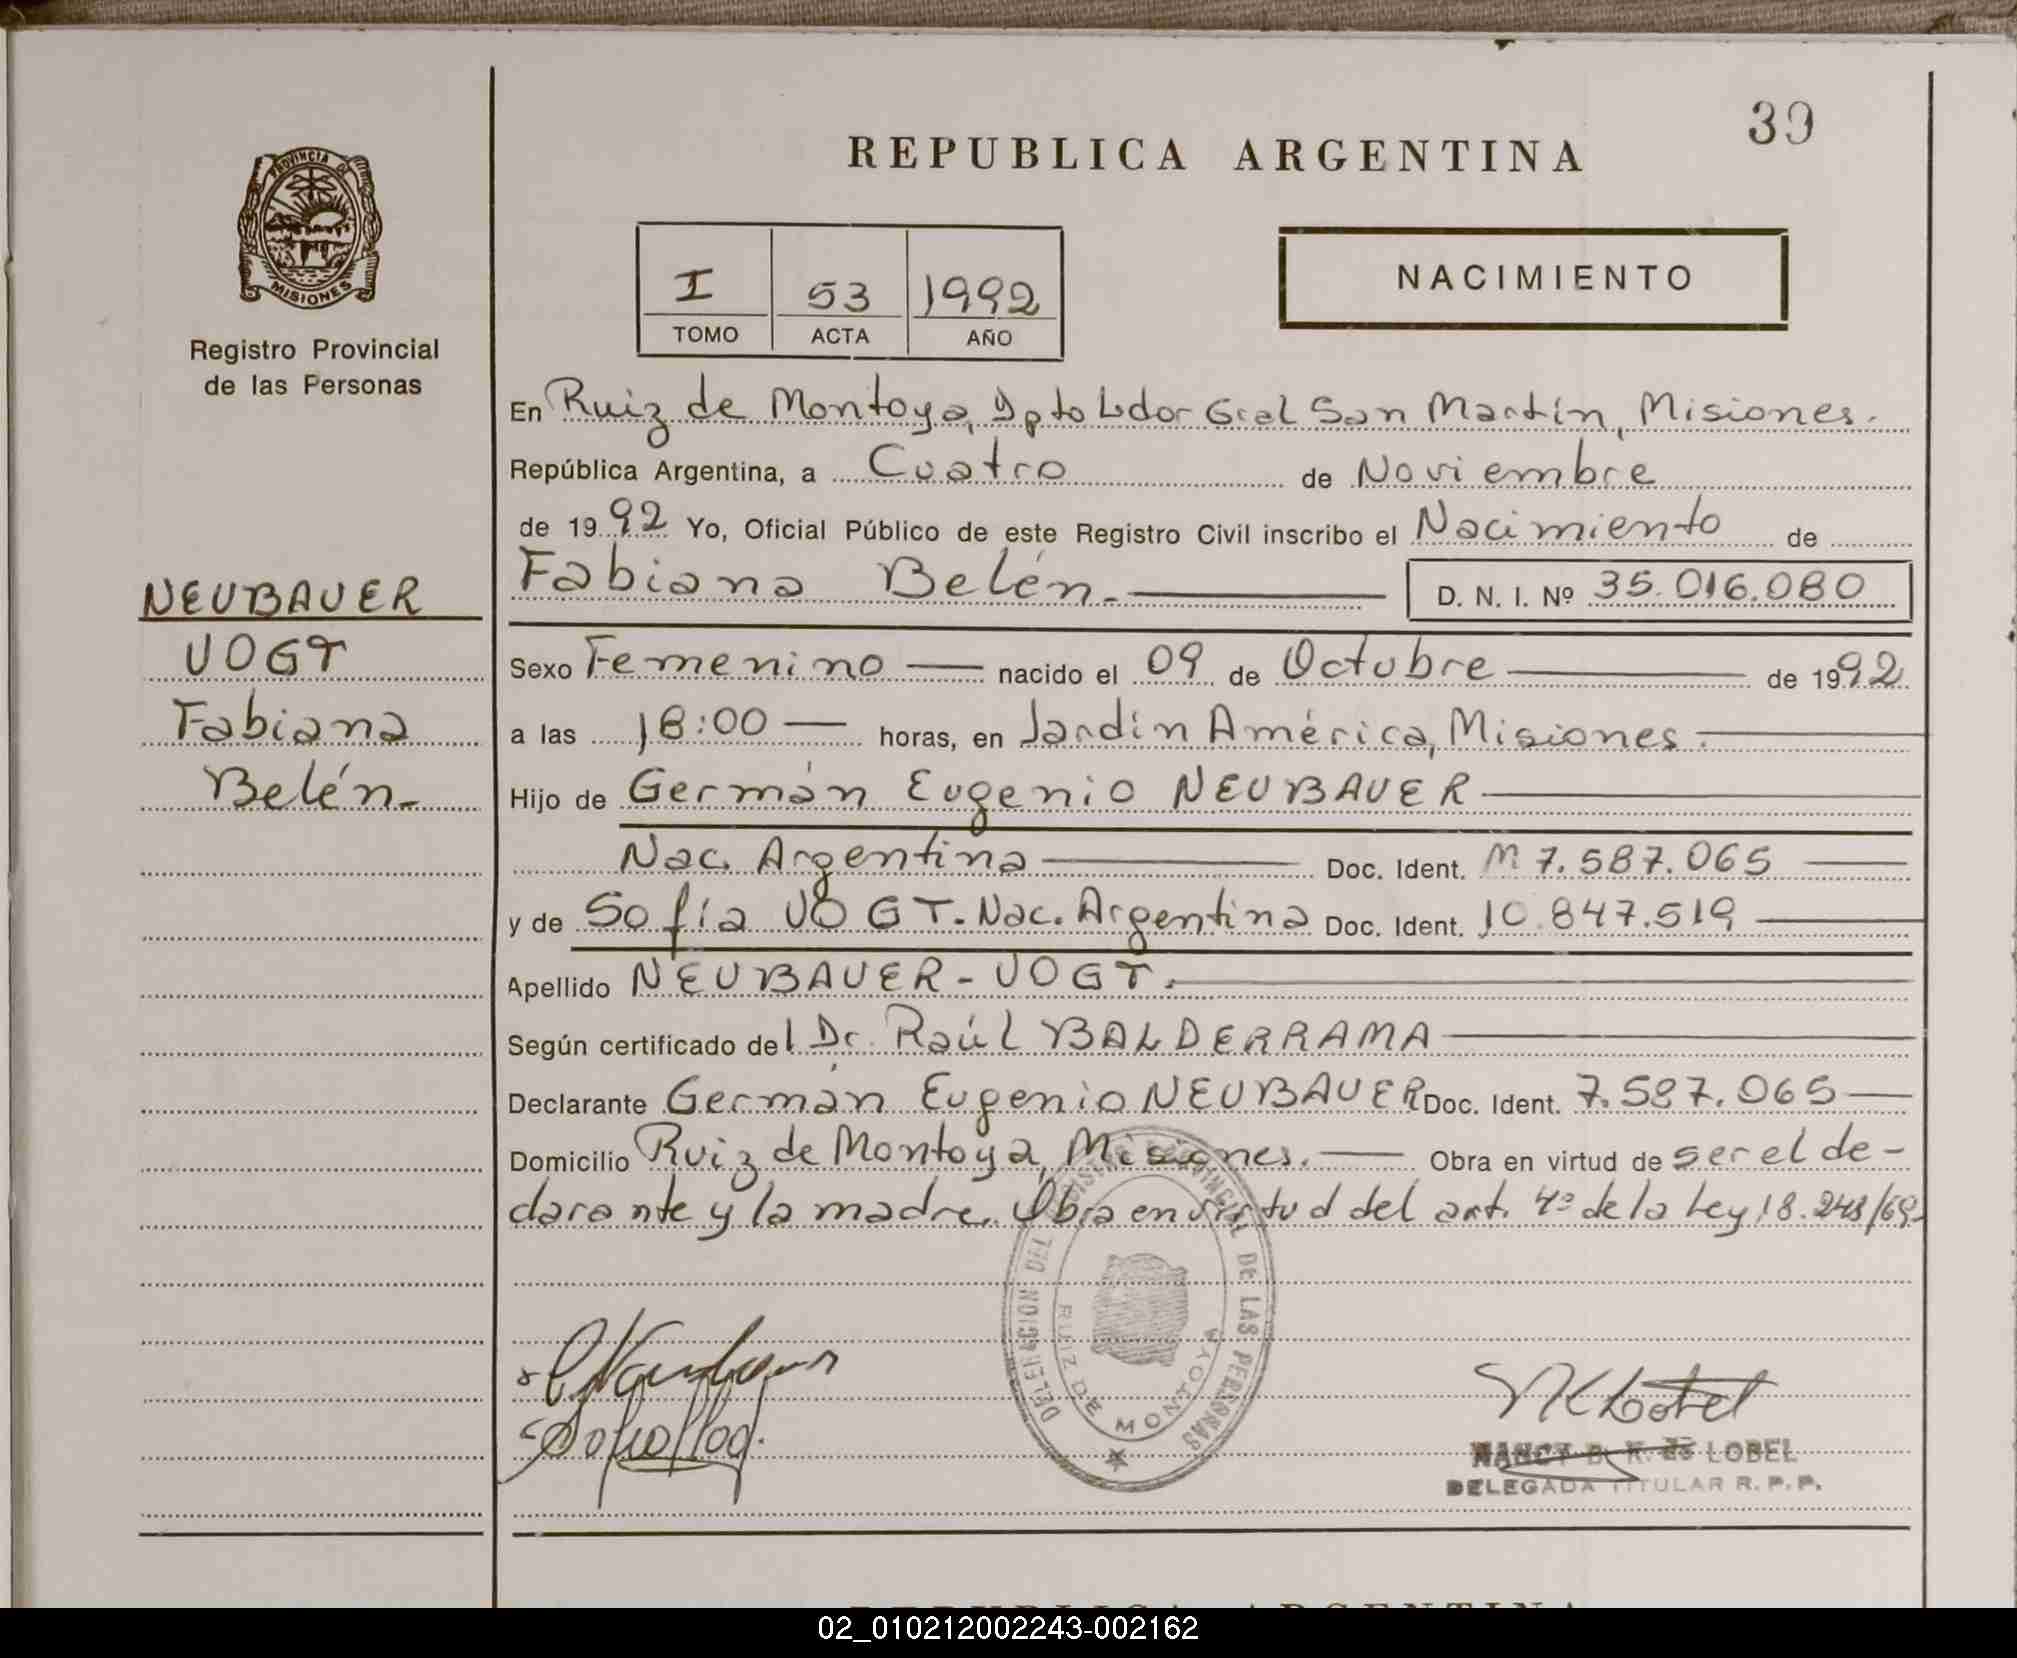 39
REPUBLICA ARGENTINA
PROVINCIA DE
MISIONES
Registro Provincial
de las Personas
I 53 1992
TOMO ACTA AÑO
NACIMIENTO
En Ruiz de Montoya, Dpto Ldor Gral San Martín, Misiones.
República Argentina, a Cuatro de Noviembre
de 1992 Yo, Oficial Público de este Registro Civil inscribo el Nacimiento de
Fabiana Belén.
D. N. I. Nº 35.016.080
NEUBAUER
VOGT
Fabiana
Belén-
Sexo Femenino nacido el 09 de Octubre de 1992
a las 18:00 horas, en Jardín América, Misiones.
Hijo de Germán Eugenio NEUBAUER
Nac. Argentina Doc. Ident. M 7.587.065
y de Sofía VOGT. Nac. Argentina Doc. Ident. 10.847.519
Apellido NEUBAUER - VOGT.
Según certificado del Dr. Raúl BALDERRAMA
Declarante Germán Eugenio NEUBAUER Doc. Ident. 7.587.065
Domicilio Ruiz de Montoya, Misiones. Obra en virtud de ser el de-
clarante y la madre. Obra en virtud del art. 4º de la Ley 18.248/69.
DELEGACION DEL REGISTRO PROVINCIAL DE LAS PERSONAS
RUIZ DE MONTOYA
NANCY B. K. de LOBEL
DELEGADA TITULAR R. P. P.
REPUBLICA ARGENTINA
02_010212002243-002162